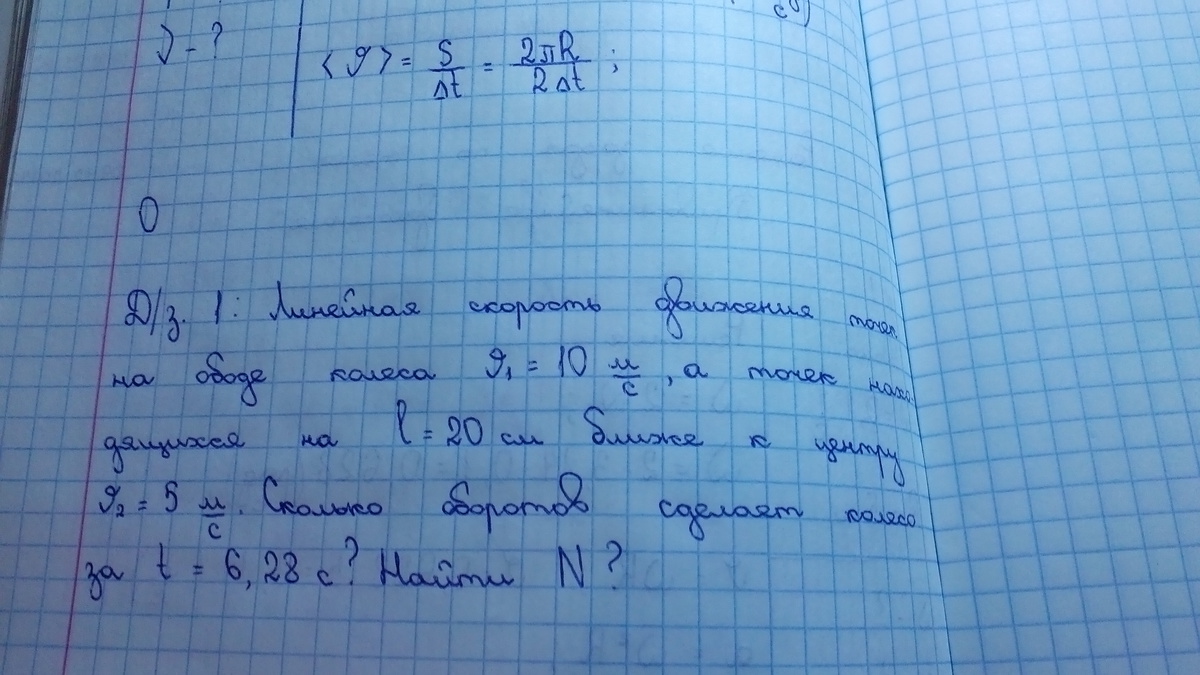 с²)
υ - ?
<υ> = S/Δt = 2πR/2Δt ;
0
Д/з. 1: Линейная скорость движения точек
на ободе колеса υ₁ = 10 м/с, а точек нахо-
дящихся на l = 20 см ближе к центру
υ₂ = 5 м/с. Сколько оборотов сделает колесо
за t = 6,28 с? Найти N?